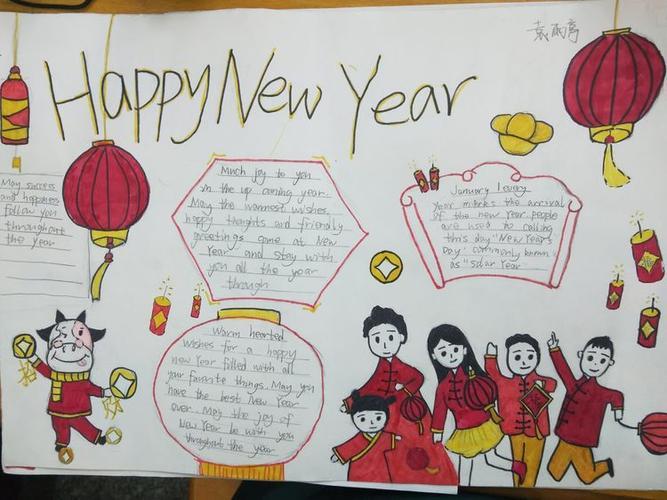 袁雨亭
Happy New Year
May success
and happiness
follow you
throughout
the year
Much joy to you
in the up coming year.
May the warmest wishes,
happy thoughts and friendly
greetings come at New
Year and stay with
you all the year
through
January 1 every
year mikes the arrival
of the new year. people
are used to calling
this day "New Year's
Day" commonly known
as "solar Year"
Warm hearted
wishes for a happy
new Year filled with all
your favorite things. May you
have the best New Year
ever. May the joy of
New Year be with you
throughout the year